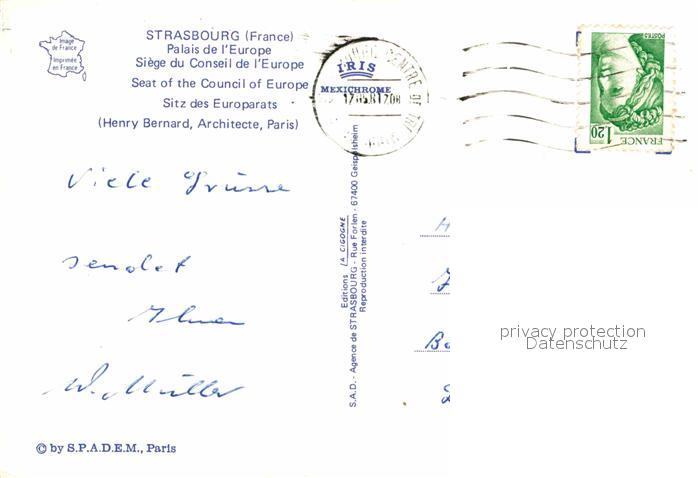 Image
de France
Imprimée
en France
STRASBOURG (France)
Palais de l'Europe
Siège du Conseil de l'Europe
Seat of the Council of Europe
Sitz des Europarats
(Henry Bernard, Architecte, Paris)
IRIS
MEXICHROME
CENTRE DE TRI
POSTES
1,20
FRANCE
Viele Grüsse
sendet
Ihnen
W. Müller
Editions LA CIGOGNE
S.A.D. - Agence de STRASBOURG - Rue Forlen - 67400 Geispolsheim
Reproduction interdite
privacy protection
Datenschutz
© by S.P.A.D.E.M., Paris